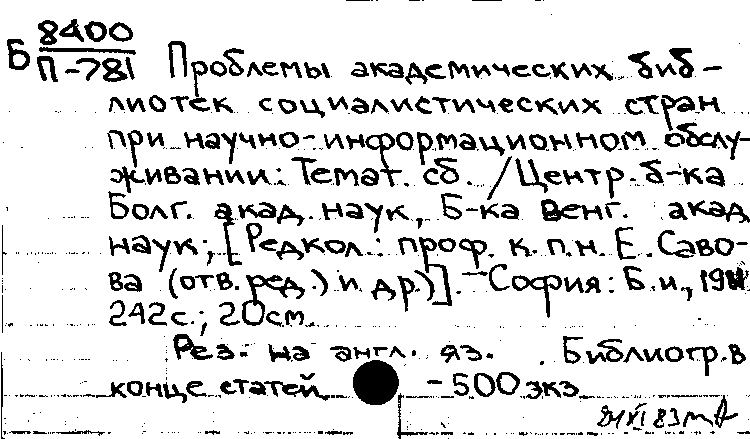 Б 8400
П-781 Проблемы академических биб-
лиотек социалистических стран
при научно-информационном обслу-
живании: Темат. сб. / Центр. б-ка
Болг. акад. наук, Б-ка Венг. акад
наук; [Редкол.: проф. к.п.н. Е. Саво-
ва (отв. ред.) и др.)]. - София: Б.и.,
242с.; 20см.
Рез. на англ. яз. . Библиогр. в
конце статей - 500 экз
XI 83